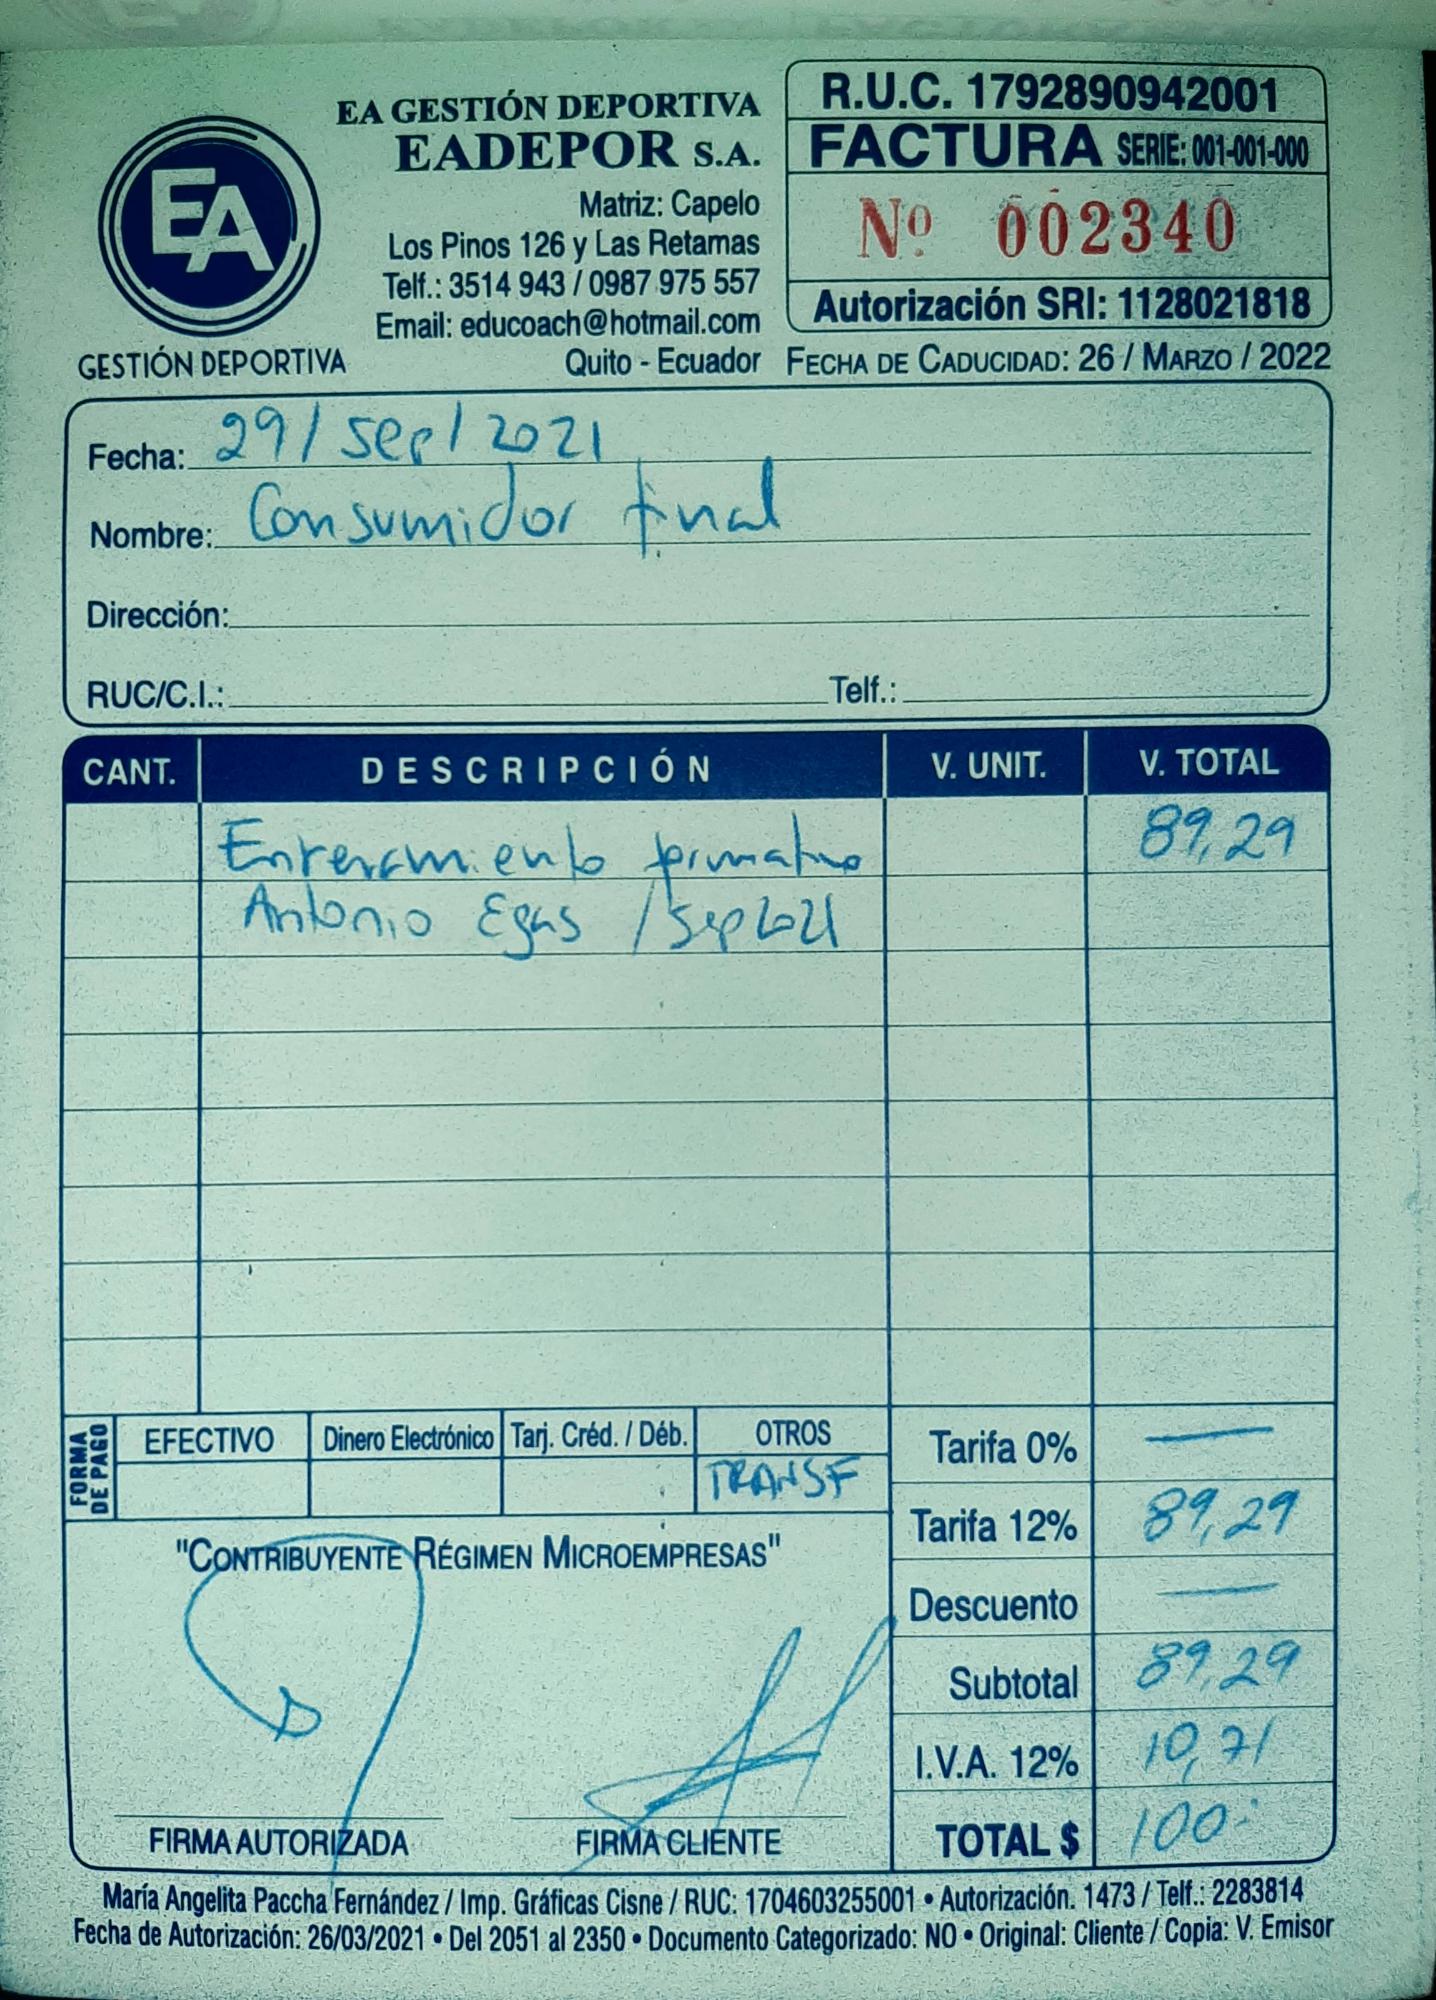 EA GESTIÓN DEPORTIVA
EADEPOR S.A.
Matriz: Capelo
Los Pinos 126 y Las Retamas
Telf.: 3514 943 / 0987 975 557
Email: educoach@hotmail.com
Quito - Ecuador
EA
GESTIÓN DEPORTIVA
R.U.C. 1792890942001
FACTURA SERIE: 001-001-000
Nº 002340
Autorización SRI: 1128021818
FECHA DE CADUCIDAD: 26 / MARZO / 2022
Fecha: 29/sep/2021
Nombre: Consumidor final
Dirección:
RUC/C.I.: Telf.:
CANT. DESCRIPCIÓN V. UNIT. V. TOTAL
Entrenamiento formativo 89,29
Antonio Egas /sep2021
FORMA DE PAGO EFECTIVO Dinero Electrónico Tarj. Créd. / Déb. OTROS
TRANSF
Tarifa 0% —
Tarifa 12% 89,29
Descuento —
Subtotal 89,29
I.V.A. 12% 10,71
TOTAL $ 100.-
"CONTRIBUYENTE RÉGIMEN MICROEMPRESAS"
FIRMA AUTORIZADA FIRMA CLIENTE
María Angelita Paccha Fernández / Imp. Gráficas Cisne / RUC: 1704603255001 • Autorización. 1473 / Telf.: 2283814
Fecha de Autorización: 26/03/2021 • Del 2051 al 2350 • Documento Categorizado: NO • Original: Cliente / Copia: V. Emisor